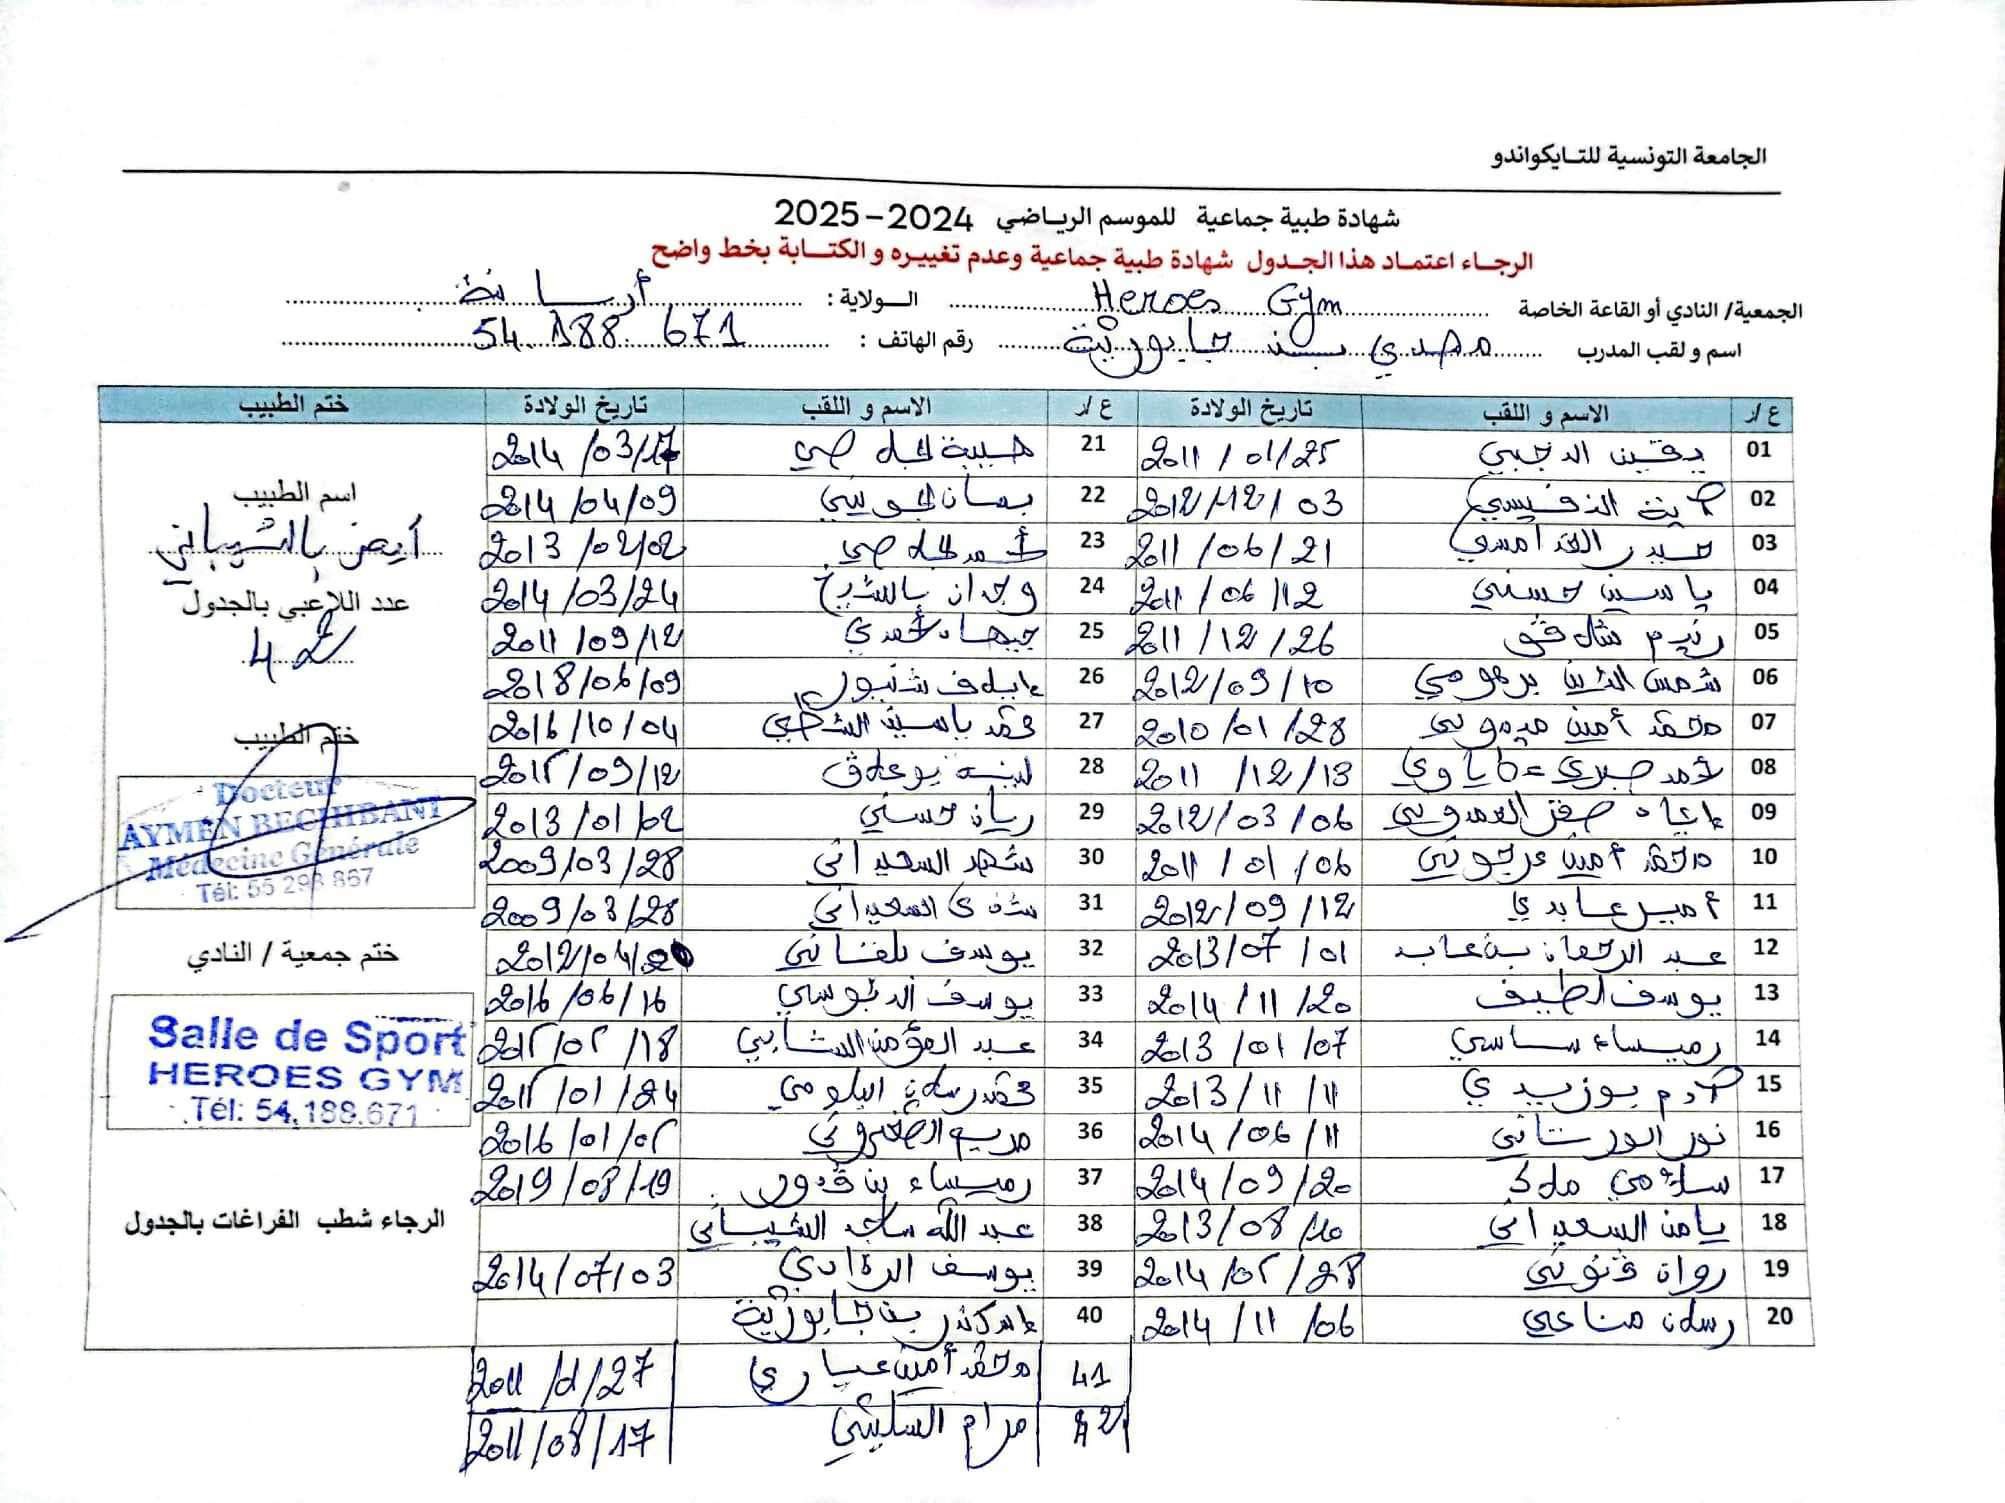 الجامعة التونسية للتايكواندو
شهادة طبية جماعية للموسم الرياضي 2024-2025
الرجاء اعتماد هذا الجدول شهادة طبية جماعية وعدم تغييره و الكتابة بخط واضح
الجمعية/ النادي أو القاعة الخاصة Heroes Gym الولاية : أريانة
اسم و لقب المدرب مهدي بن جابورية رقم الهاتف : 54.188.671
ع /ر الاسم و اللقب تاريخ الولادة ع /ر الاسم و اللقب تاريخ الولادة ختم الطبيب
01 يقين الدجبي 2011/01/25 21 حبيبة 2014/03/17
02 آية النفيسي 2012/12/03 22 الجويني 2014/04/09
03 حيدر الغدامسي 2011/06/21 23 2013/02/02
04 ياسين حسني 2011/06/12 24 وجدان بالشيخ 2014/03/24
05 2011/12/26 25 جيهاد أحمدي 2011/09/12
06 شمس الدين برهومي 2012/09/10 26 2018/06/09
07 محمد أمين ميموني 2010/01/28 27 محمد ياسين 2016/10/04
08 أحمد صبري 2011/12/13 28 لبنة 2015/09/12
09 صفر العمدوني 2012/03/06 29 ريان حسني 2013/01/02
10 محمد أمين عرجوني 2011/01/06 30 شهد السعيداني 2009/03/28
11 أمير عابدي 2012/09/12 31 شذى السعيداني 2009/03/28
12 عبد الرحمان بن عابد 2013/07/01 32 يوسف بلغناني 2012/04/
13 يوسف لطيف 2014/11/20 33 يوسف الدبوسي 2016/06/16
14 رميساء ساسي 2013/01/07 34 عبد المؤمن الشابي 2015/05/18
15 آدم بوزيدي 2013/11/11 35 محمد رسلان البلومي 2015/01/24
16 نور الورتاني 2014/06/11 36 مريم الصغروني 2016/01/05
17 سلامي ملاك 2014/09/20 37 رميساء بن قدور 2019/08/19
18 يامن السعيداني 2013/08/10 38 عبد الله ساجد الشيباني
19 روان قنوني 2014/05/28 39 يوسف الرقادي 2014/07/03
20 رسلان مناعي 2014/11/06 40 بن جابورية
41 محمد أمين عياري 2011/ /27
42 مرام السليتي 2011/08/17
اسم الطبيب
أيمن بالشيباني
عدد اللاعبي بالجدول
42
ختم الطبيب
Docteur
AYMEN BECHIBANI
Médecine Générale
Tél: 55 293 867
ختم جمعية / النادي
Salle de Sport
HEROES GYM
Tél: 54.188.671
الرجاء شطب الفراغات بالجدول